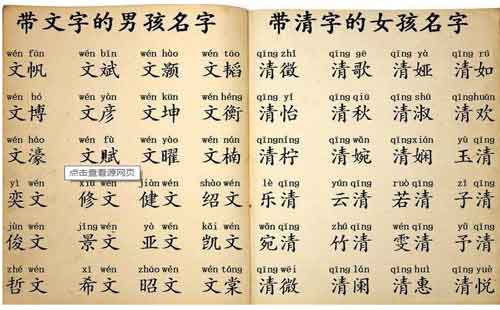 带文字的男孩名字
wén fān wén bīn wén hào wén tāo
文帆 文斌 文灏 文韬
wén bó wén yàn wén kūn wén héng
文博 文彦 文坤 文衡
wén háo wén fù wén yào wén nán
文濠 文赋 文曜 文楠
点击查看源网页
yì wén xiū wén jiàn wén shào wén
奕文 修文 健文 绍文
jùn wén jǐng wén yà wén kǎi wén
俊文 景文 亚文 凯文
zhé wén xī wén zhāo wén wén táng
哲文 希文 昭文 文棠
带清字的女孩名字
qīng zhǐ qīng gē qīng yà qīng rú
清徵 清歌 清娅 清如
qīng yí qīng qiū qīng shū qīng huān
清怡 清秋 清淑 清欢
qīng níng qīng wǎn qīng xián yù qīng
清柠 清婉 清娴 玉清
lè qīng yún qīng ruò qīng zǐ qīng
乐清 云清 若清 子清
qīng zhú qīng qīng qīng
宛清 竹清 雯清 予清
qīng wēi qīng lán qīng huì qīng yuè
清微 清阑 清惠 清悦